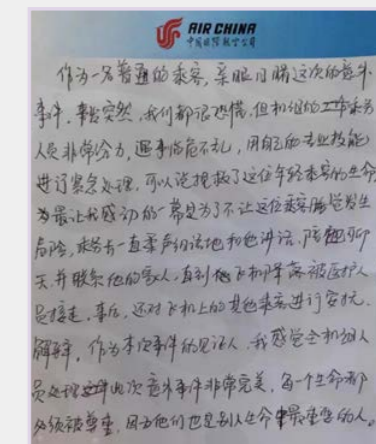 AIR CHINA
中国国际航空公司
作为一名普通的乘客，亲眼目睹这次的意外
事件，事发突然，我们都很恐慌，但机组的工作乘务
人员非常给力，遇事临危不乱，用自己的专业技能
进行紧急处理，可以说挽救了这位年轻乘客的生命
为最让我感动的一幕是为了不让这位乘客睡觉发生
危险，乘务长一直柔声细语地和他讲话，陪他聊
天，并联系他的家人，直到飞机降落被医护人
员接走，事后，还对飞机上的其他乘客进行安抚、
解释，作为本次事件的见证人，我感觉全机组人
员处理这件此次意外事件非常完美，每一个生命都
必须被尊重，因为他们也是别人生命中最重要的人。